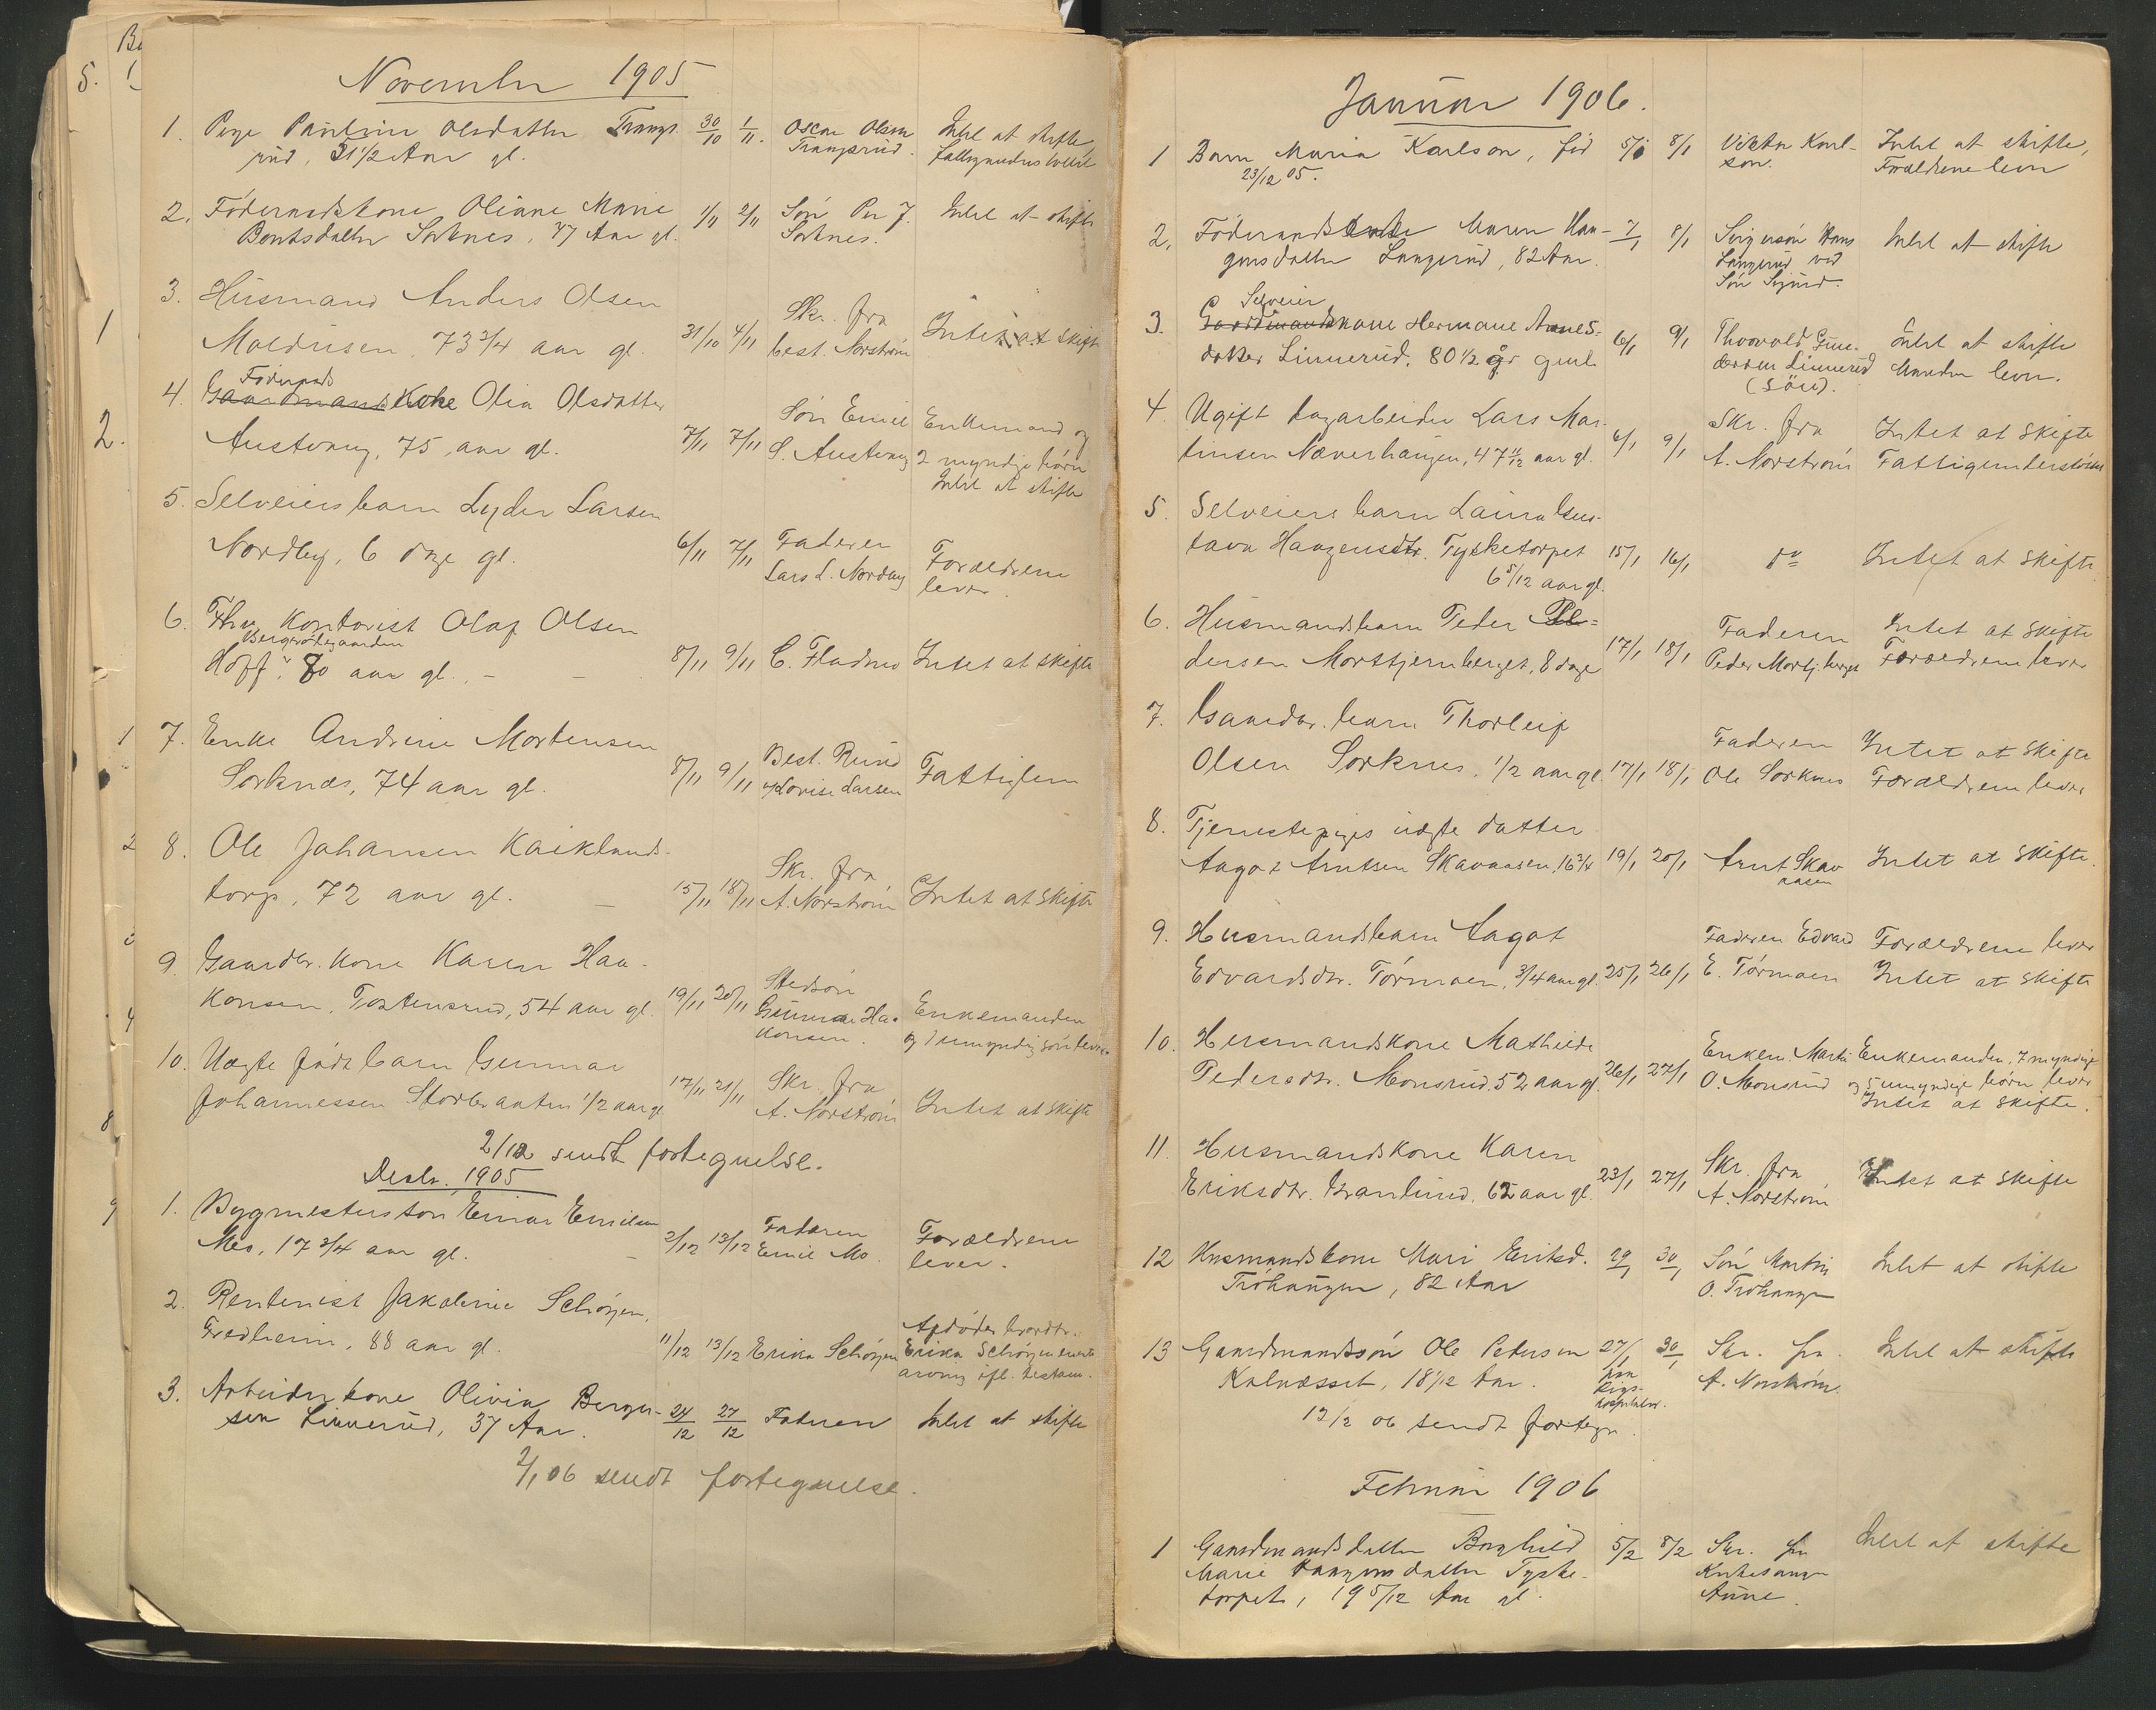 November 1905
1. Pige Pauline Olsdatter Trangs- 30/10 1/11. Oscar Olsen Intet at skifte,
rud, 31 1/2 Aar gl. Trangsrud.
2. Føderaadskone Oliane Marie 1/11 2/11 Søn Per J. Intet at skifte
Berntsdatter Sorknes, 77 Aar gl. Sorknes.
3. Husmand Anders Olsen Skr. fra
Moldusen, 73 3/4 aar gl. 31/10 4/11 best. Norstrøm Intet at skifte
Føderaads
4. Gaardmands Kone Olia Olsdatter Søn Emil Enkemand og
Austvang, 75 aar gl. 7/11 7/11 S. Austvang 2 myndige børn
Intet at skifte
5. Selveiersbarn Lyder Larsen
Nordby, 6 dage gl. 6/11 7/11 Faderen Forældrene
Lars L. Nordby lever.
6. Fhv. Kontorist Olaf Olsen
Hoff, 80 aar gl. 8/11 9/11 C. Fladmo Intet at skifte
7. Enke Andrine Mortensen Best. Ruud
Sorknæs, 74 aar gl. 8/11 9/11 v/ Lovise Larsen Fattiglem
8. Ole Johansen Kaiklands- Skr. fra
torp, 72 aar gl. 15/11 18/11 A. Norstrøm Intet at skifte
9. Gaardbr. kone Karen Haa- Stedsøn
konsen, Tostensrud, 54 aar gl. 19/11 20/11 Gunnar Haa- Enkemanden
konsen. og 1 umyndig søn lever
10. Uægte født barn Gunnar 17/11 21/11 Skr. fra
Johannessen Storbraaten 1/2 aar gl A. Norstrøm Intet at skifte
2/12 sendt fortegnelse.
Desbr. 1905
1. Bygmesters søn Einar Emilsen Faderen Forældrene
Mo, 17 3/4 aar gl. 2/12 13/12 Emil Mo. lever.
2. Rentenist Jakobine Schøyen, Afdødes brordtr.
Fredheim, 88 aar gl. 11/12 13/12 Erika Schøyen Erika Schøyen eneste
arving ifl. testam.
3. Arbeiderkone Olivia Berger- 24/12 27/12 Faderen Intet at skifte
sen Linnerud, 37 Aar.
2/1 06 sendt fortegnelse.
Januar 1906.
1 Barn Maria Karlson, født 5/1 8/1 Viktor Karl- Intet at skifte,
23/12 05. son. Forældrene lever
2. Føderaadsenke Maren Haa- 7/1 8/1 Svigersøn Hans Intet at skifte
gensdatter Langerud, 82 Aar. Langerud ved
Søn Sigurd.
Selveier
3. Gaardmandskone Hermane Arnes- 6/1 9/1 Thorvald Gun- Intet at skifte
datter Linnerud, 80 1/2 år gml. dersen Linnerud Manden lever.
(søn).
4. Ugift dagarbeider Lars Mar- Skr. fra Intet at skifte
tinsen Næverhaugen, 47 11/12 aar gl. 6/1 9/1 A. Norstrøm Fattigunderstøttet
5. Selveiers barn Laura Gus-
tava Haagensdtr. Tysketorpet 15/1 16/1 do Intet at skifte
6 5/12 aar gl.
6. Husmandsbarn Peder Pe- Faderen Intet at skifte
dersen Morttjernberget, 8 dage 17/1 18/1 Peder Mortj.berget Forældrene lever
7. Gaardbr. barn Thorleif Faderen Intet at skifte
Olsen Sorknes, 1/2 aar gl. 17/1 18/1 Ole Sorknes Forældrene lever
8. Tjenestepiges uægte datter
Aagot Arntsen Skavaasen, 16 3/4 19/1 20/1 Arnt Skav Intet at skifte.
aasen
9. Husmandsbarn Aagot Faderen Edvard Forældrene lever
Edvardsdtr. Tørmoen, 3/4 aar gl. 25/1 26/1 E. Tørmoen Intet at skifte
10. Husmandskone Mathilde Enkem. Martin Enkemanden, 7 myndige
Pedersdtr. Monsrud, 52 aar gl. 26/1 27/1 O. Monsrud og 5 umyndige børn lever
Intet at skifte.
11. Husmandskone Karen Skr. fra
Eriksdtr. Granlund, 62 aar gl. 23/1 27/1 A. Norstrøm Intet at skifte
12 Husmandskone Mari Eriksd. 29/1 30/1 Søn Martin Intet at skifte
Trøhaugen, 82 Aar O. Trøhaugen
13 Gaardmandssøn Ole Pedersen 27/1 30/1 Skr. fra Intet at skifte
Kalnæsset, 18 1/12 Aar. paa A. Norstrøm.
Rigs-
hospitalet.
12/2 06 sendt fortegn.
Februar 1906
1 Gaardmandsdatter Borghild 5/2 8/2 Skr. fra Intet at skifte
Marie Haagensdatter Tyske- Kirkesanger
torpet, 19 5/12 Aar gl. Aune.